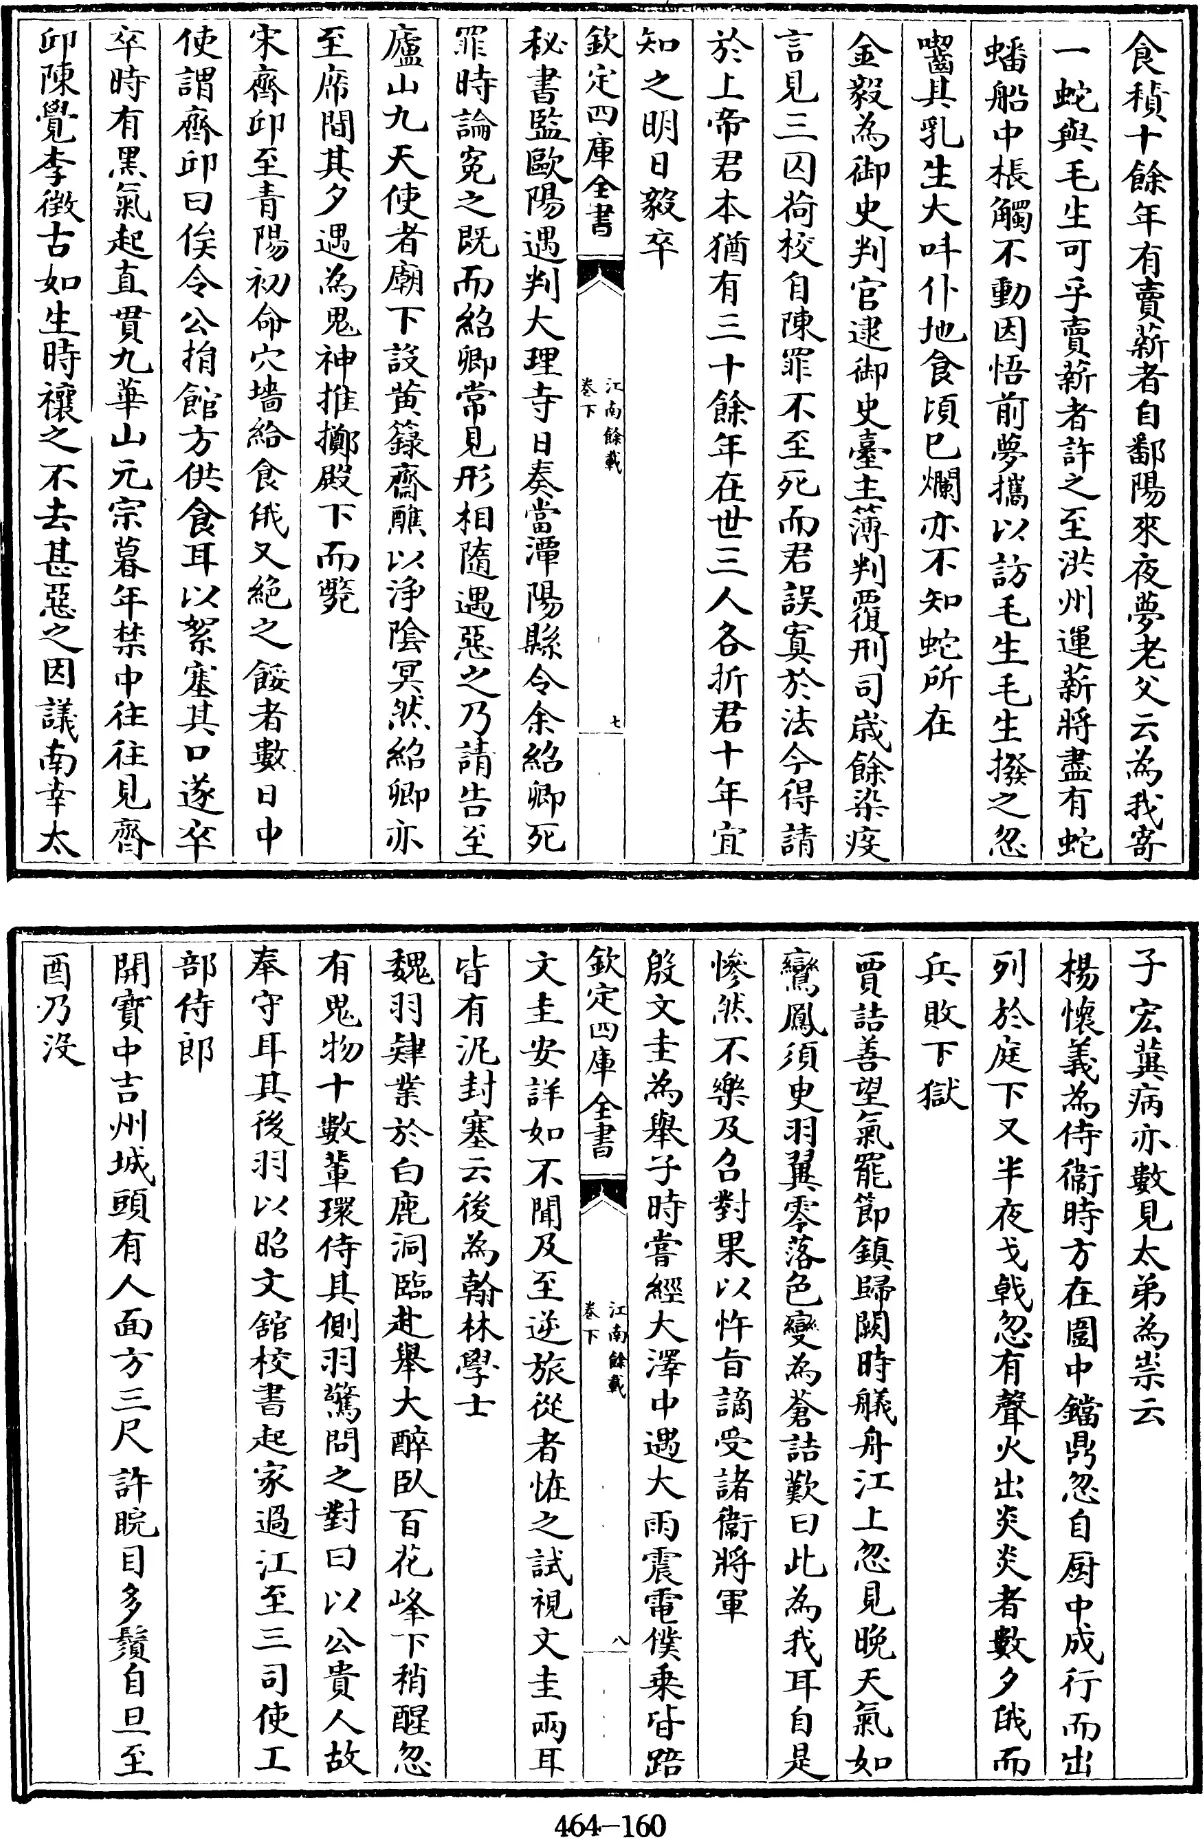 食積十餘年有賣薪者自鄱陽來夜夢老父云為我寄
一蛇與毛生可乎賣薪者許之至洪州運薪將盡有蛇
蟠船中棖觸不動因悟前夢攜以訪毛生毛生撥之忽
囓其乳生大呌仆地食頃已爛亦不知蛇所在
金毅為御史判官逮御史臺主簿判覆刑司歲餘染疫
言見三囚荷校自陳罪不至死而君誤寘於法今得請
於上帝君本猶有三十餘年在世三人各折君十年宜
知之明日毅卒
欽定四庫全書
江南餘載
卷下
七
秘書監歐陽遇判大理寺日奏當潭陽縣令余紹卿死
罪時論寃之既而紹卿常見形相隨遇惡之乃請告至
廬山九天使者廟下設黄籙齋醮以淨陰冥然紹卿亦
至席間其夕遇為鬼神推擲殿下而斃
宋齊邱至青陽初命穴墻給食俄又絶之餒者數日中
使謂齊邱曰俟令公捐館方供食耳以絮塞其口遂卒
卒時有黑氣起直貫九華山元宗暮年禁中往往見齊
邱陳覺李徵古如生時禳之不去甚惡之因議南幸太
子宏冀病亦數見太弟為祟云
楊懷義為侍衞時方在圊中鐺鼎忽自厨中成行而出
列於庭下又半夜戈戟忽有聲火出炎炎者數夕俄而
兵敗下獄
賈詰善望氣罷節鎮歸闕時艤舟江上忽見晚天氣如
鸞鳳須臾羽翼零落色變為蒼詰歎曰此為我耳自是
慘然不樂及召對果以忤旨謫受諸衞將軍
殷文圭為舉子時嘗經大澤中遇大雨震電僕乘皆踣
欽定四庫全書
江南餘載
卷下
八
文圭安詳如不聞及至逆旅從者恠之試視文圭兩耳
皆有泥封塞云後為翰林學士
魏羽肄業於白鹿洞臨赴舉大醉臥百花峰下稍醒忽
有鬼物十數輩環侍其側羽驚問之對曰以公貴人故
奉守耳其後羽以昭文舘校書起家過江至三司使工
部侍郎
開寶中吉州城頭有人面方三尺許睆目多鬚自旦至
酉乃没
464-160